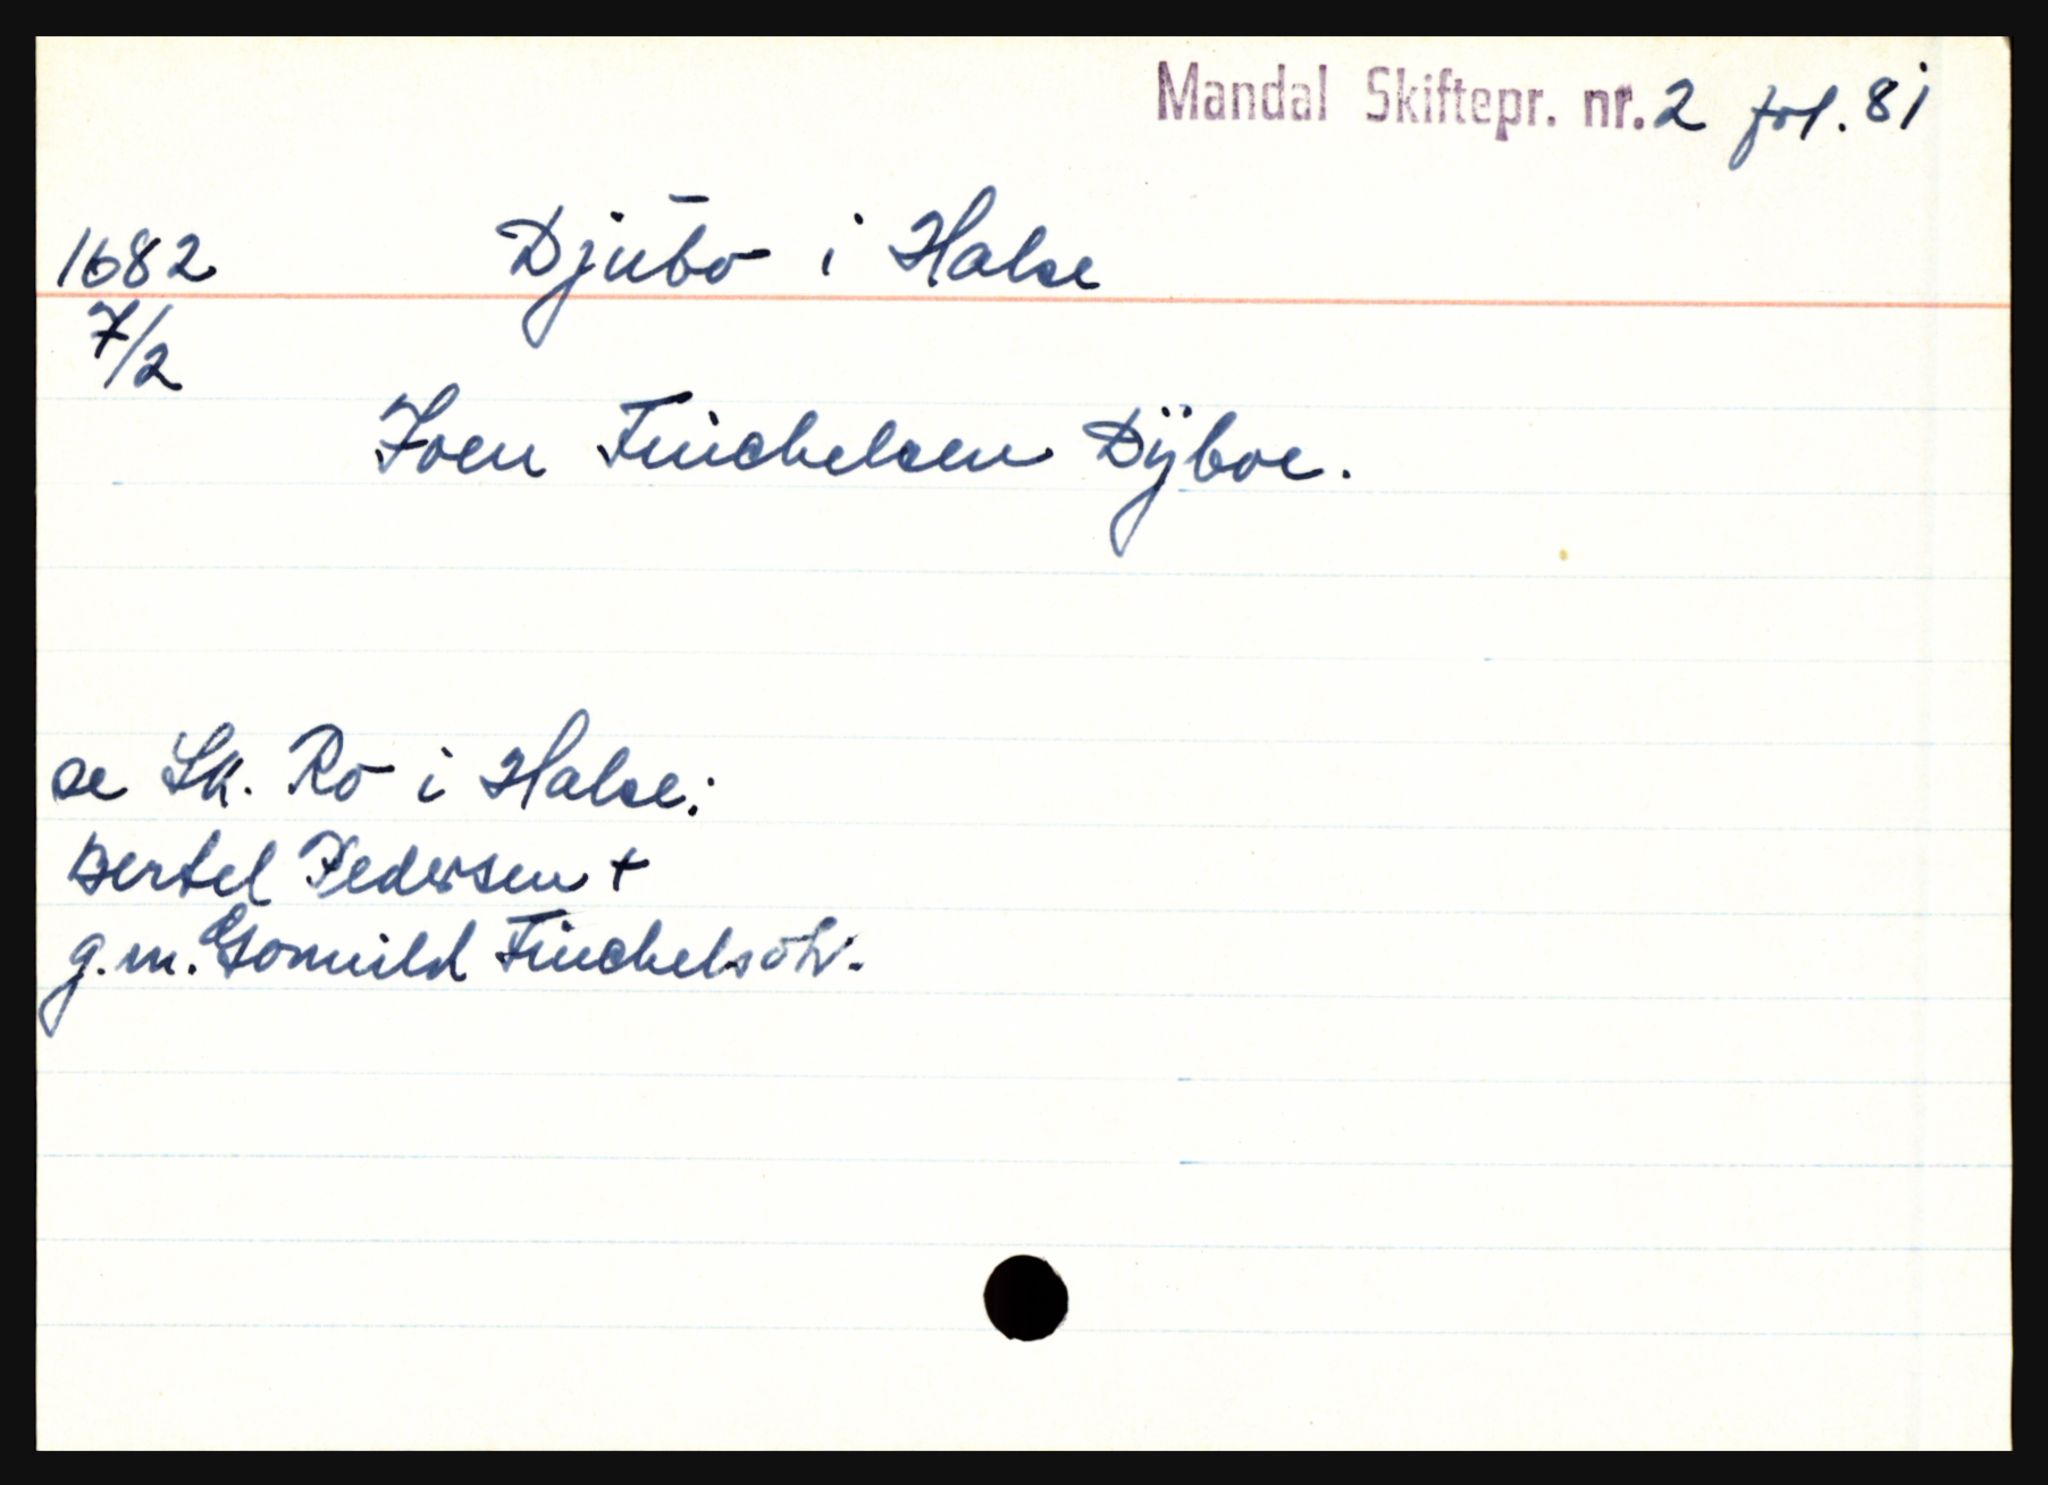 Mandal Skiftepr. nr. 2 fol. 81
1682 Djubo i Halse
7/2
Iven Finchelsen Dÿboe.
se Sk. Ro i Halse:
Bertel Pedersen +
g.m. Gonnild Finchelsdtr.